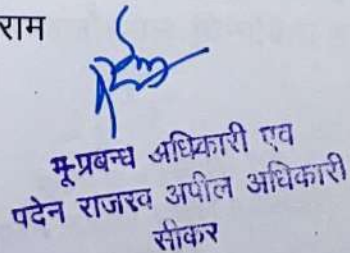 राम
भू-प्रबन्ध अधिकारी एव
पदेन राजस्व अपील अधिकारी
सीकर